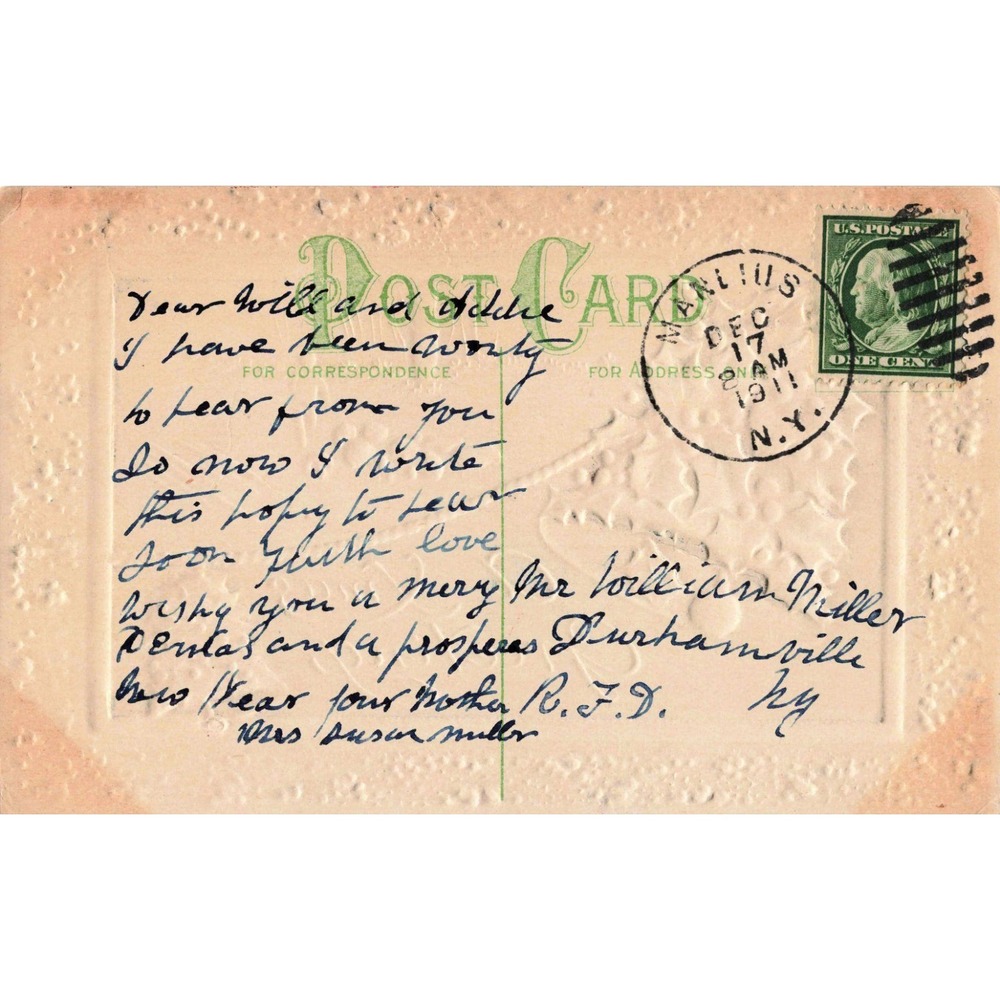 POST CARD
FOR CORRESPONDENCE
FOR ADDRESS ONLY
MANLIUS
DEC
17
8 AM
1911
N.Y.
U.S. POSTAGE
ONE CENT
Dear Will and Addie
I have been
to hear from you
So now I write
this to hear
soon with love
you a mery
and a prosperes
New Year your Mother
Mrs Susan Miller
Mr William Miller
Durhamville
R.F.D. Ny